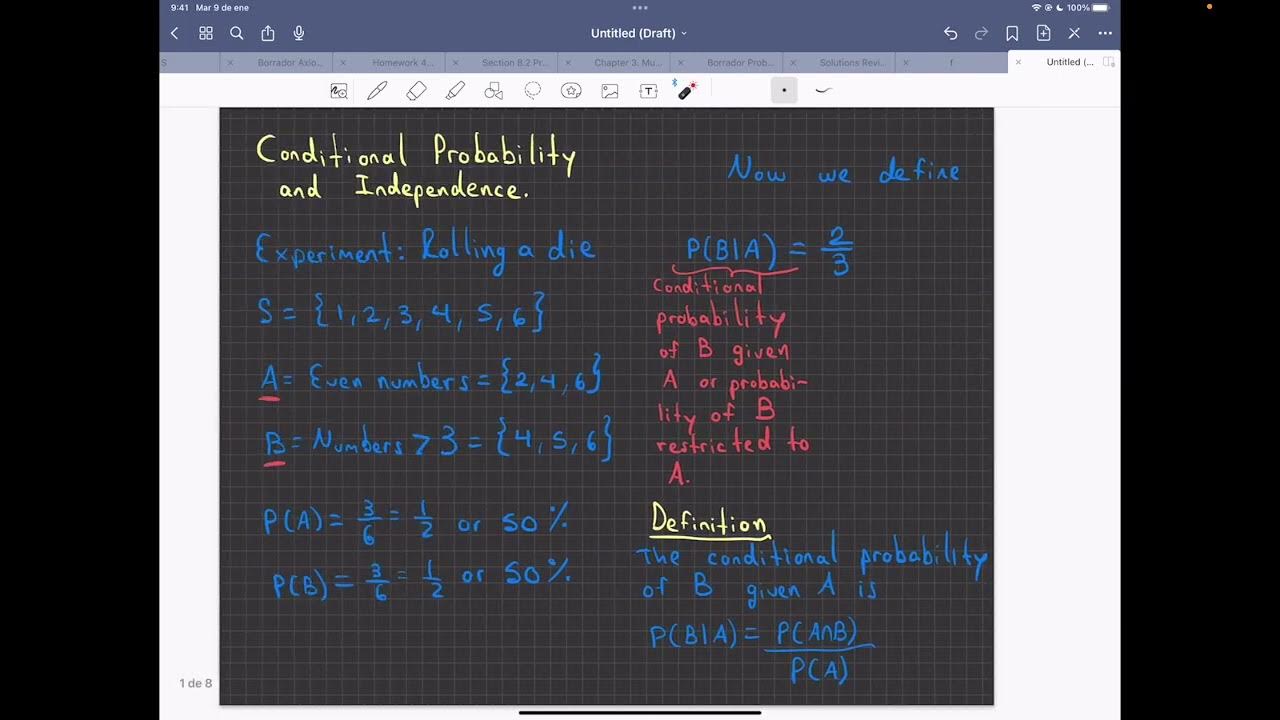 9:41 Mar 9 de ene
100%
Untitled (Draft)
S
Borrador Axio...
Homework 4...
Section B.2 Pr...
Chapter 3. Mu...
Borrador Prob...
Solutions Revi...
f
Untitled (...
Conditional Probability
and Independence.
Experiment: Rolling a die
S = {1, 2, 3, 4, 5, 6}
A = Even numbers = {2, 4, 6}
B = Numbers > 3 = {4, 5, 6}
P(A) = 3/6 = 1/2 or 50%
P(B) = 3/6 = 1/2 or 50%
Now we define
P(B|A) = 2/3
Conditional
probability
of B given
A or probabi-
lity of B
restricted to
A.
Definition
The conditional probability
of B given A is
P(B|A) = P(A∩B)
P(A)
1 de 8